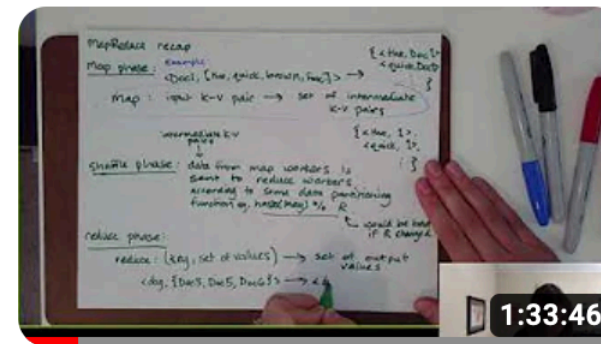 MapReduce recap
Map phase: Example
<Doc1, {the, quick, brown, fox}> → {<the, Doc1>,
<quick, Doc1>
}
map: input k-v pair → set of intermediate
k-v pairs
intermediate k-v
pairs
{<the, 1>,
<quick, 1>,
: }
shuffle phase: data from map workers is
sent to reduce workers
according to some data partitioning
function eg. hash(key) % R
would be bad
if R changed
reduce phase:
reduce: (key, set of values) → set of output
values
<dog, {Doc3, Doc5, Doc6}> → <
1:33:46